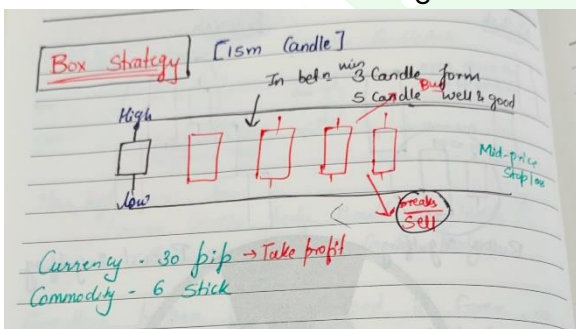 Box Strategy [15m Candle]
In betn min 3 Candle form
5 candle well & good
Buy
High
Low
Mid-price
Stop loss
breaks
Sell
Currency - 30 pip → Take profit
Commodity - 6 Stick